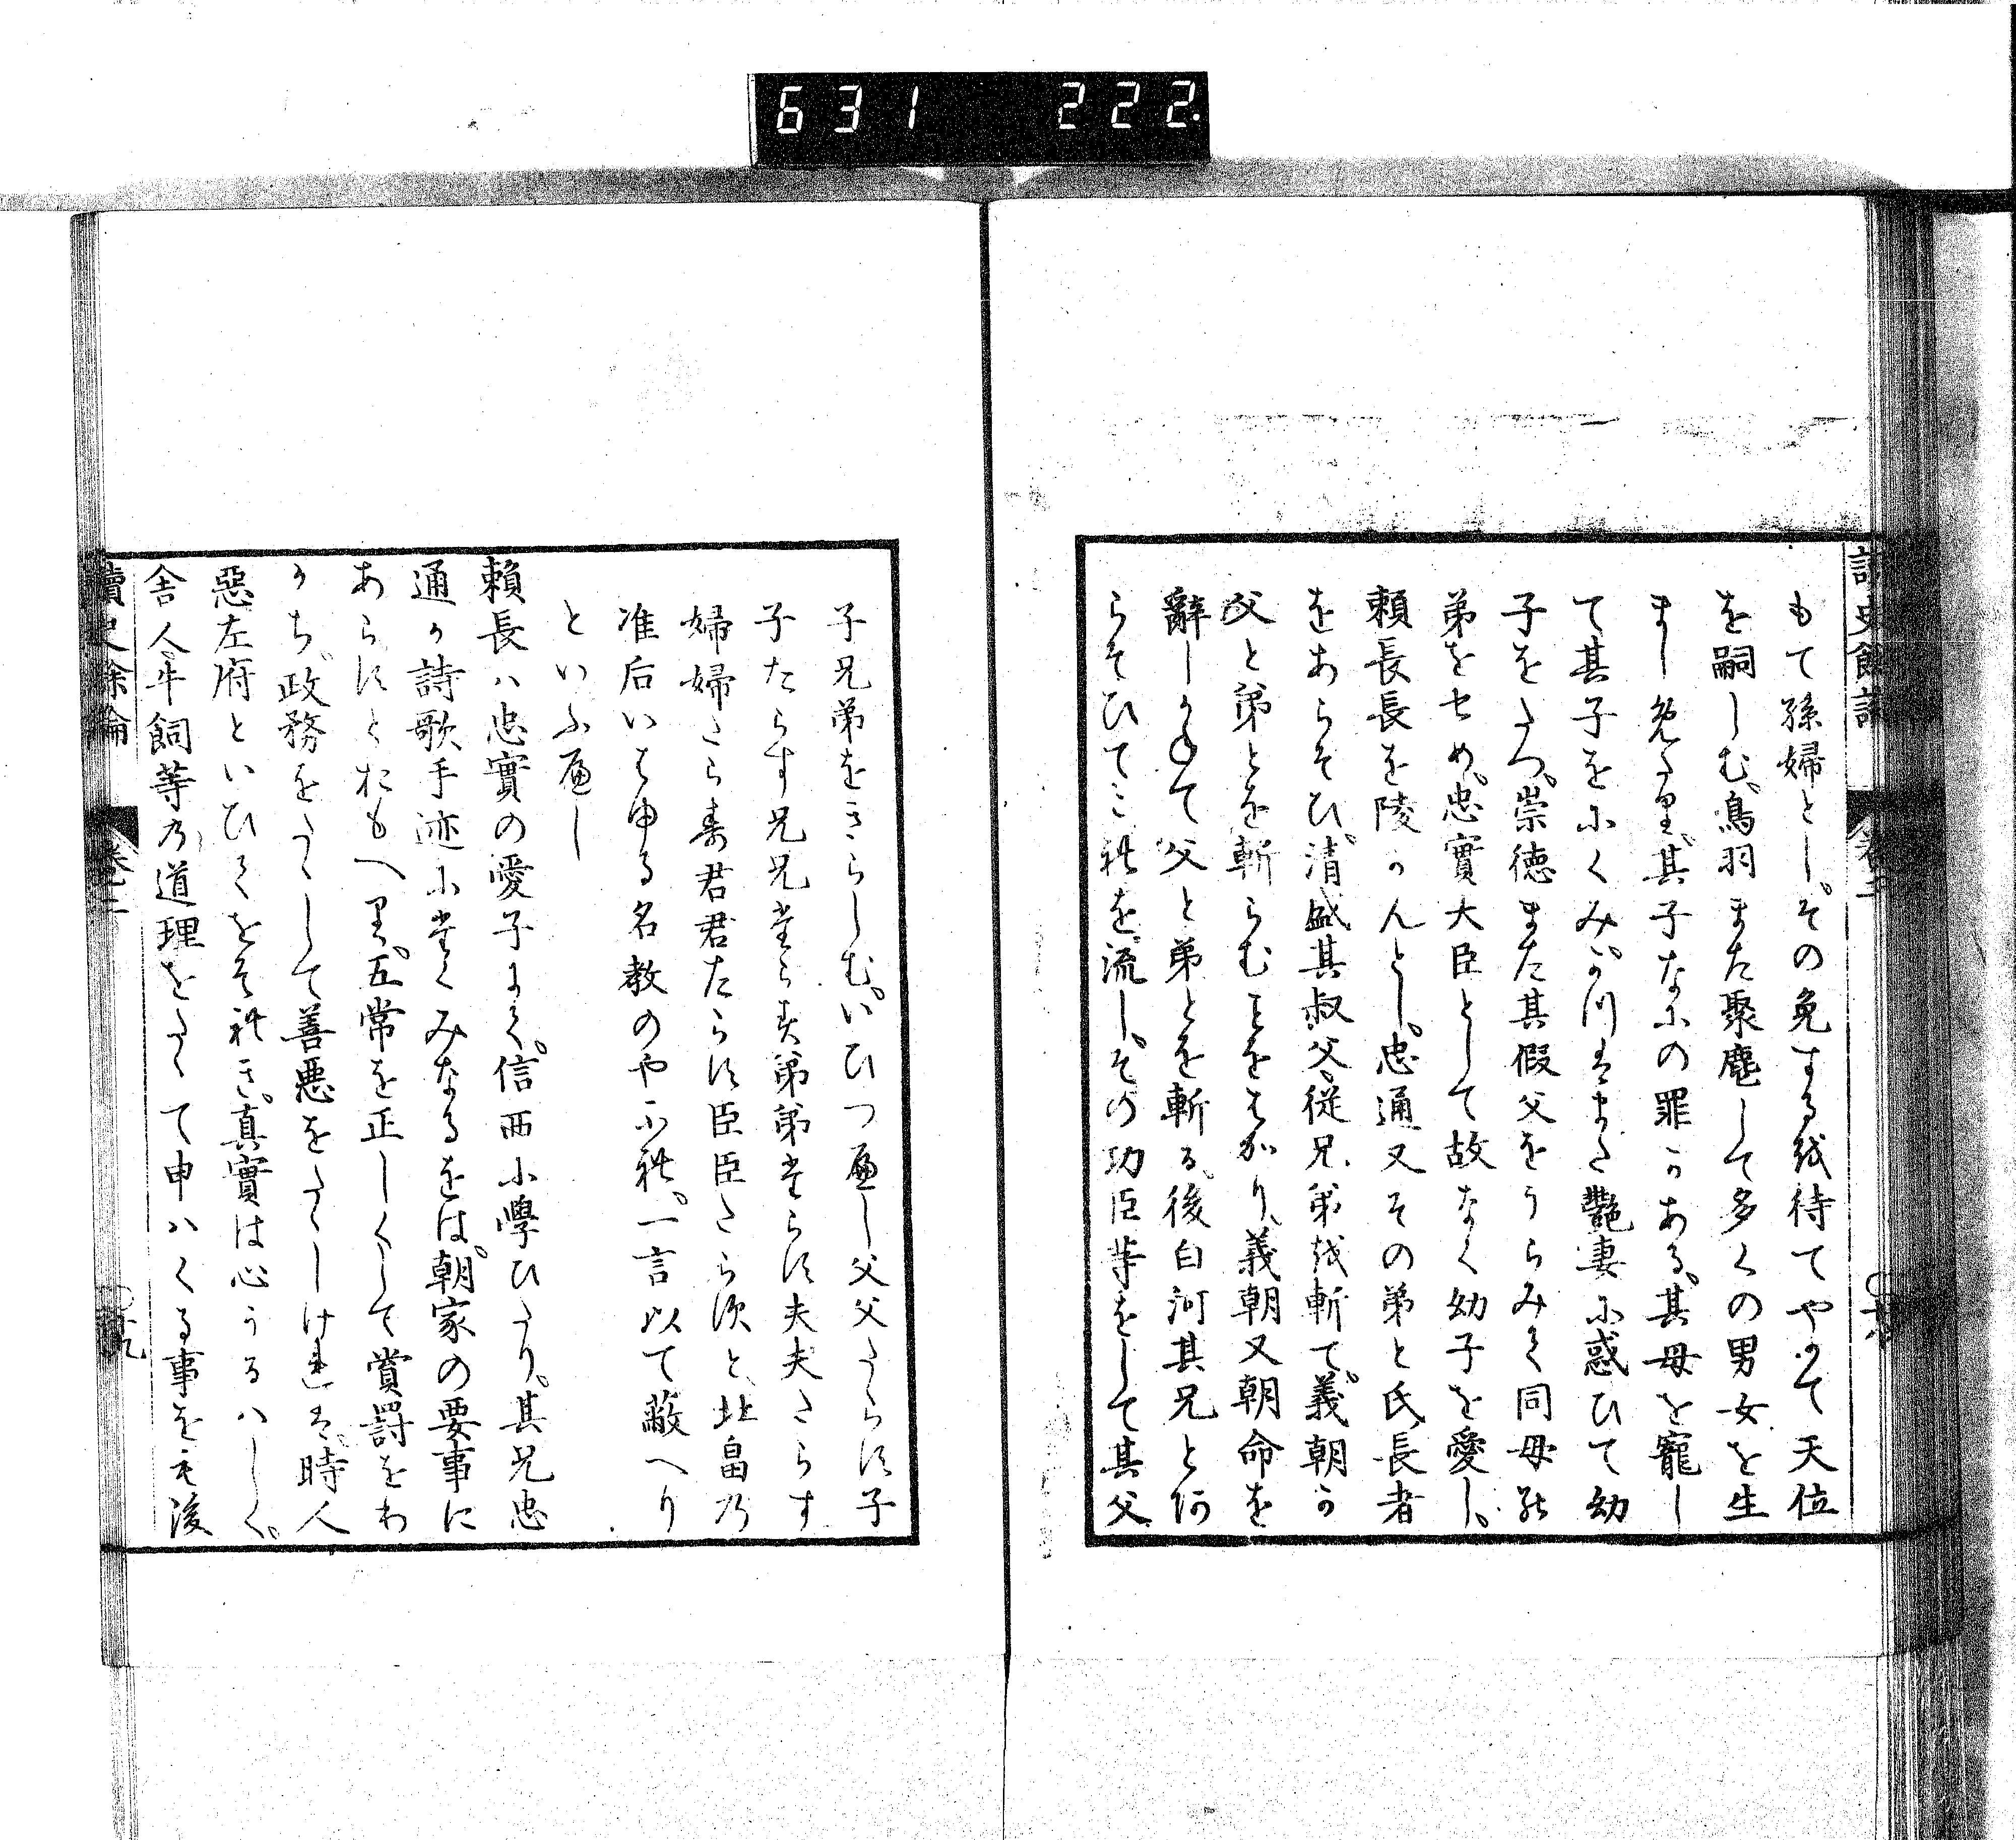 631 222
もて孫婦とし。その兔する越待てやかて天位
を嗣しむ。鳥羽また聚麀して多くの男女を生
まし免多里。其子なにの罪かある。其母を寵し
て其子をにくみ。かつはまた艶妻に惑ひて幼
子をたつ。崇徳また其假父をうらみて同母能
弟をせめ。忠實大臣として故なく幼子を愛し。
頼長長を陵かんとし。忠通又その弟と氏長者
をあらそひ。清盛其叔父從兄弟越斬て。義朝か
父と弟とを斬らむことをはかり。義朝又朝命を
辭しかねて父と弟とを斬る。後白河其兄と阿
らそひてこ禮を流し。その功臣等をして其父
子兄弟をきらしむ。いひつ遍し父父たらす子
子たらす兄兄堂らす弟弟堂らす夫夫たらす
婦婦たら寿君君たらす臣臣たら須と。北畠乃
准后いはゆる名教のやふ禮。一言以て蔽へり
といふ遍し
頼長ハ忠實の愛子にて。信西に學ひたり。其兄忠
通か詩歌手迹に堂くみなるをは。朝家の要事に
あらすとおもへ里。五常を正しくして賞罰をわ
かち。政務をたゝして善悪をたゝしけ連は。時人
惡左府といひてをそ禮き。真實は心うるハしく。
舎人牛飼等乃道理をたゝて申ハくる事をも後
讀史餘論 卷之二